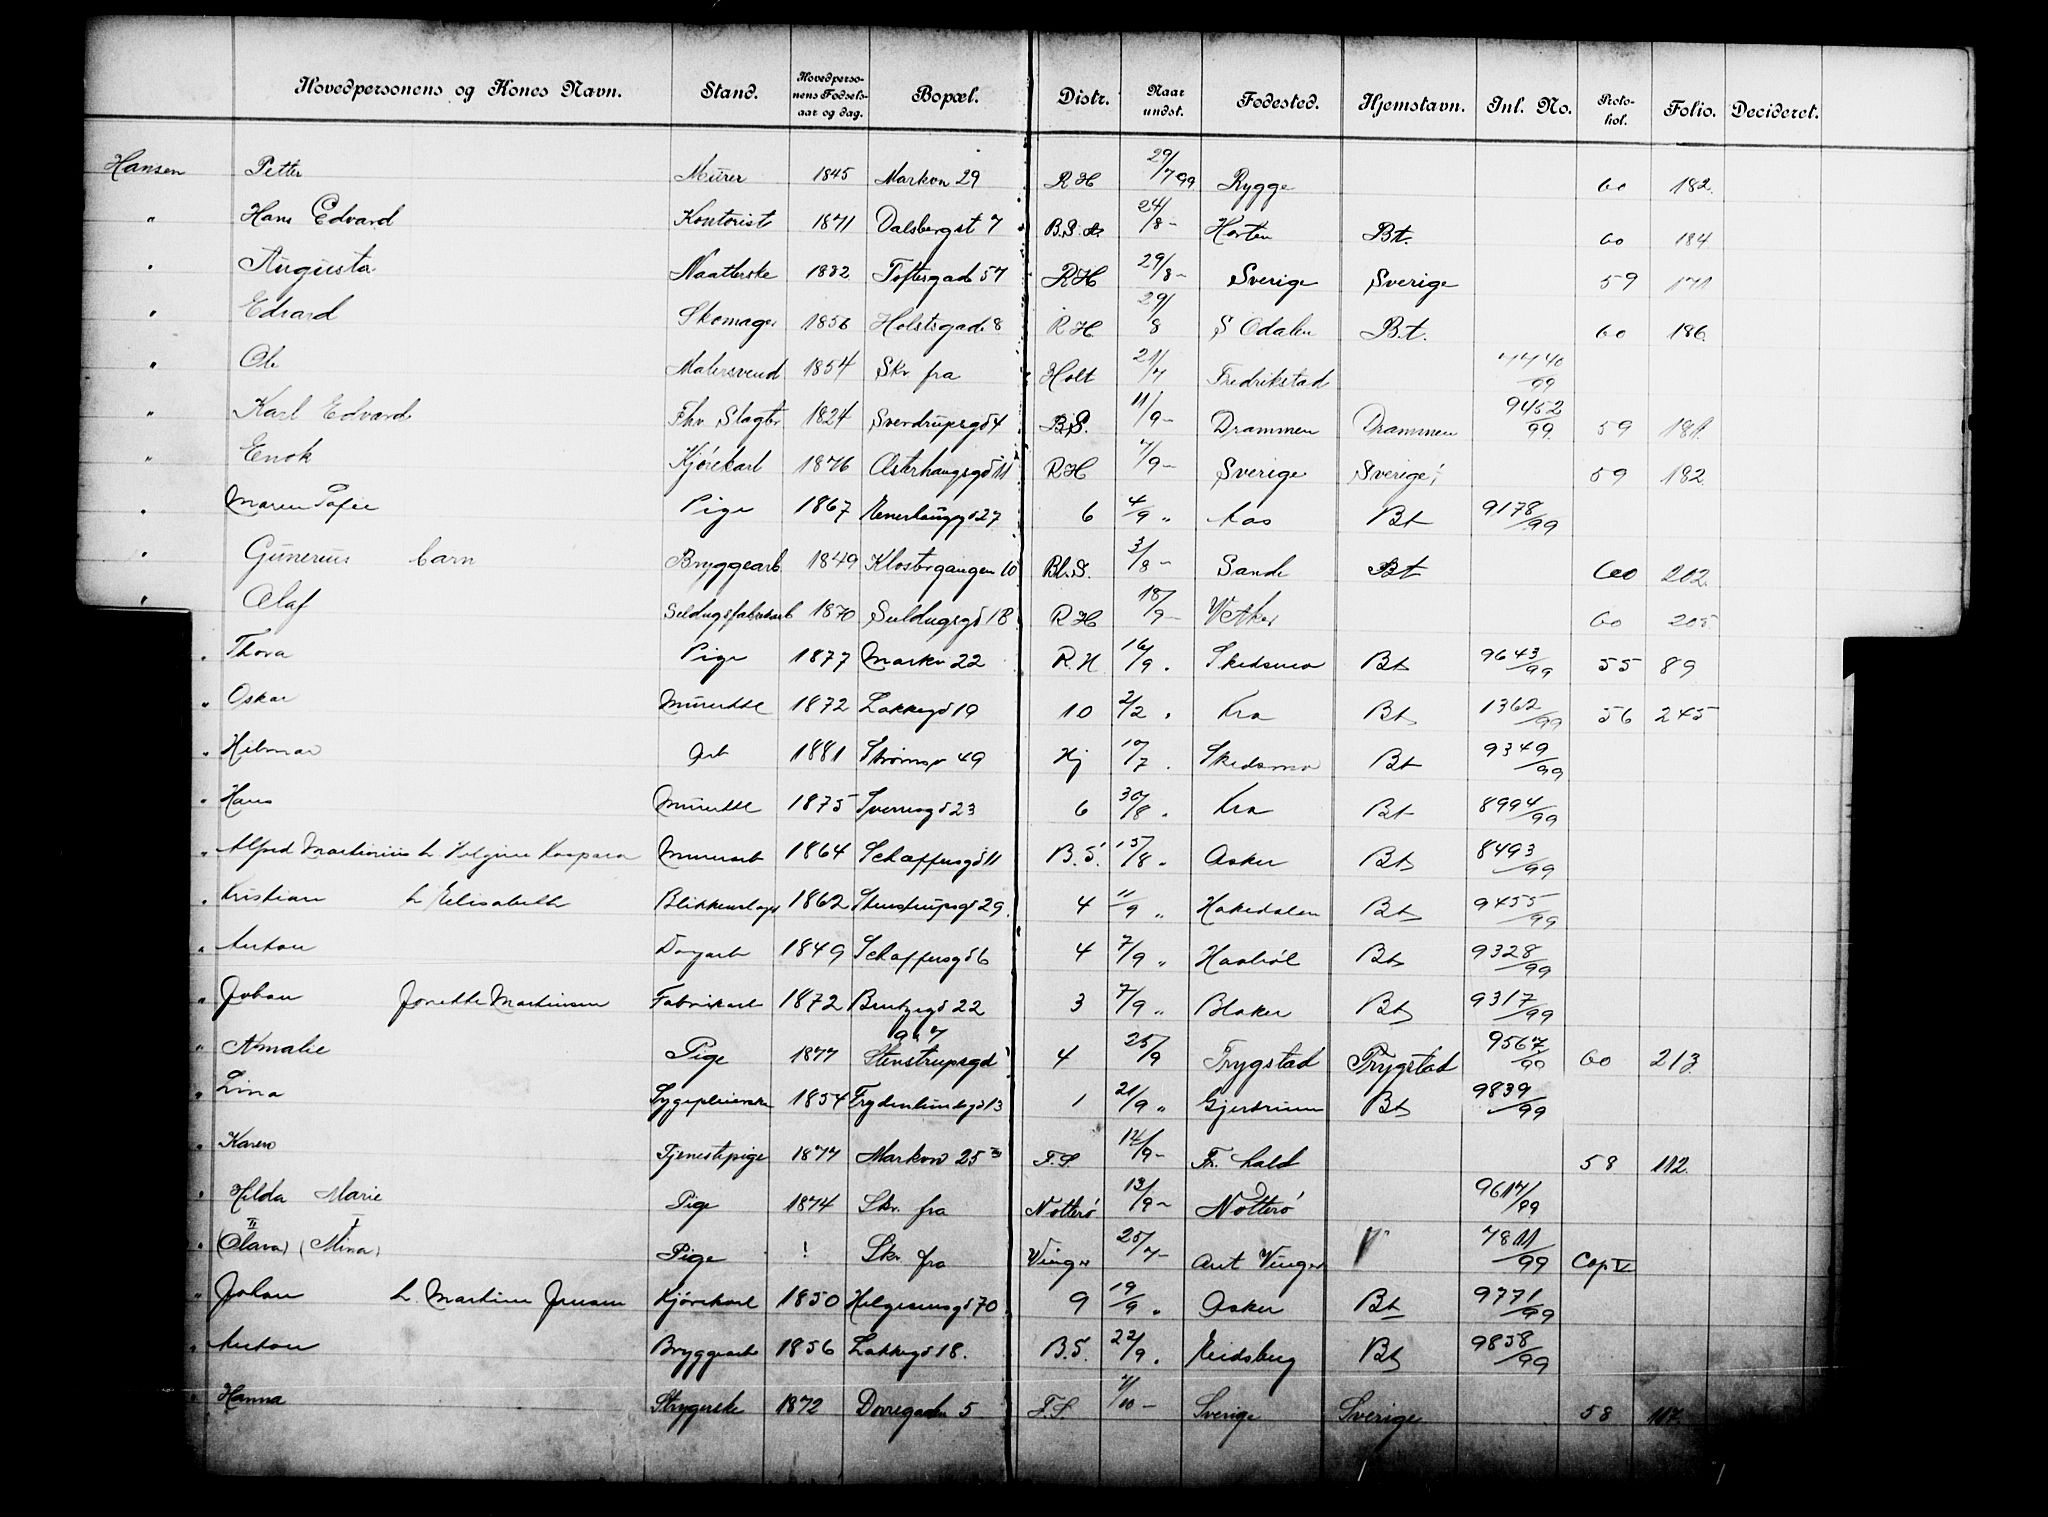 Hovedpersonens og Kones Navn. Stand. Hovedpersonens Fødselsaar og dag. Bopæl. Distr. Naar undst. Fødested. Hjemstavn. Inl. No. Protokol. Folio. Decideret.
Hansen Petter Murer 1845 Markvn 29 RH 29/7 99 Rygge 60 182.
" Hans Edvard Kontorist 1871 Dalsbergst 7 24/8 - Horten Bt. 60 184
" Augusta 1882 Toftesgade 57 RH 29/8 - Sverige Sverige 59 171
" Edvard Skomager 1856 Holstsgade 8 R H. 29/8 S Odalen B.t. 60 186
" Ole Malersvend 1854 Skr fra Holt 21/7 Fredrikstad 99
" Karl Edvard Fhv. Slagter 1824 Sverdrupsgd 4 B.S. 11/9 - Drammen Drammen 9452/99. 59 181.
" Enok Kjørekarl 1876 Østerhaugsgd 11 RH 7/9 - Sverige Sverige 59 182
" Maren Sofie Pige 1867 Enerhauggd 27 6 4/9 " Aas Bt 9178/99
" Gunerius barn Bryggearb 1849 Klostergangen 10 Bl.S. 3/8 - Sande Bt 60 202.
" Olaf Seildugsfabrikarb 1870 Seildugsgd 18 R H 18/9 - V Aker 60 205
" Thora Pige 1877 Markv 22 R.H 16/9 " Skedsmo Bt 9643/99 55 89
" Oskar 1872 Lakkegd 19 10 2/2 " Kra Bt 1362/99 56 245
" Hilmar Arb 1881 Strømsv 49 Hj 10/7 " Skedsmo Bt 9349/99
" Hans 1875 Sverresgd 23 6 30/8 " Kra Bt 8994/99
" Alfred Martinius h. Helgine Kaspara Murerarb 1864 Schæffersgd 11 B.S. 15/8 " Asker Bt 8493/99
" Kristian h. Elisabeth Blikkenslager 1862 Stenstrupsgd 29 4 11/9 " Hakedalen Bt 9455/99
" Anton Dagarb 1849 Schæffersgd 6 4 7/9 " Haabøl Bt 9328/99
" Johan Jonette Martinsen Fabrikarb 1872 22 3 7/9 " Blaker Bt 9317/99
" Amalie Pige 1877 Stenstrupsgd 9 a 7 4 25/9 Trygstad Trygstad 9567 60 213
" Lina Sygepleierske 1854 Frydenlundsgd 13 1 21/9 " Gjerdrum Bt 9839/99
" Karen Tjenestepige 1877 Markvn 25 F.S. 14/9 - Fr. hald 58 112
" Hilda Marie Pige 1874 Skr. fra Nøtterø 13/9 - Nøtterø 9617/99
" (Olava) II (Mina) I Pige ! Skr. fra Vinger 25/7 - Vinger 7811/99 Cop V
" Johan h. Martine Jensen Kjørekarl 1850 Helgesensgd 70 9 19/9 " Asker Bt 9771/99
" Anton Bryggearb 1856 Lakkegd 18. B.S. 22/9 " Eidsberg Bt 9858/99
" Hanna Strygerske 1872 Dovregaden 5 F.S. /10 - Sverige Sverige 58 117